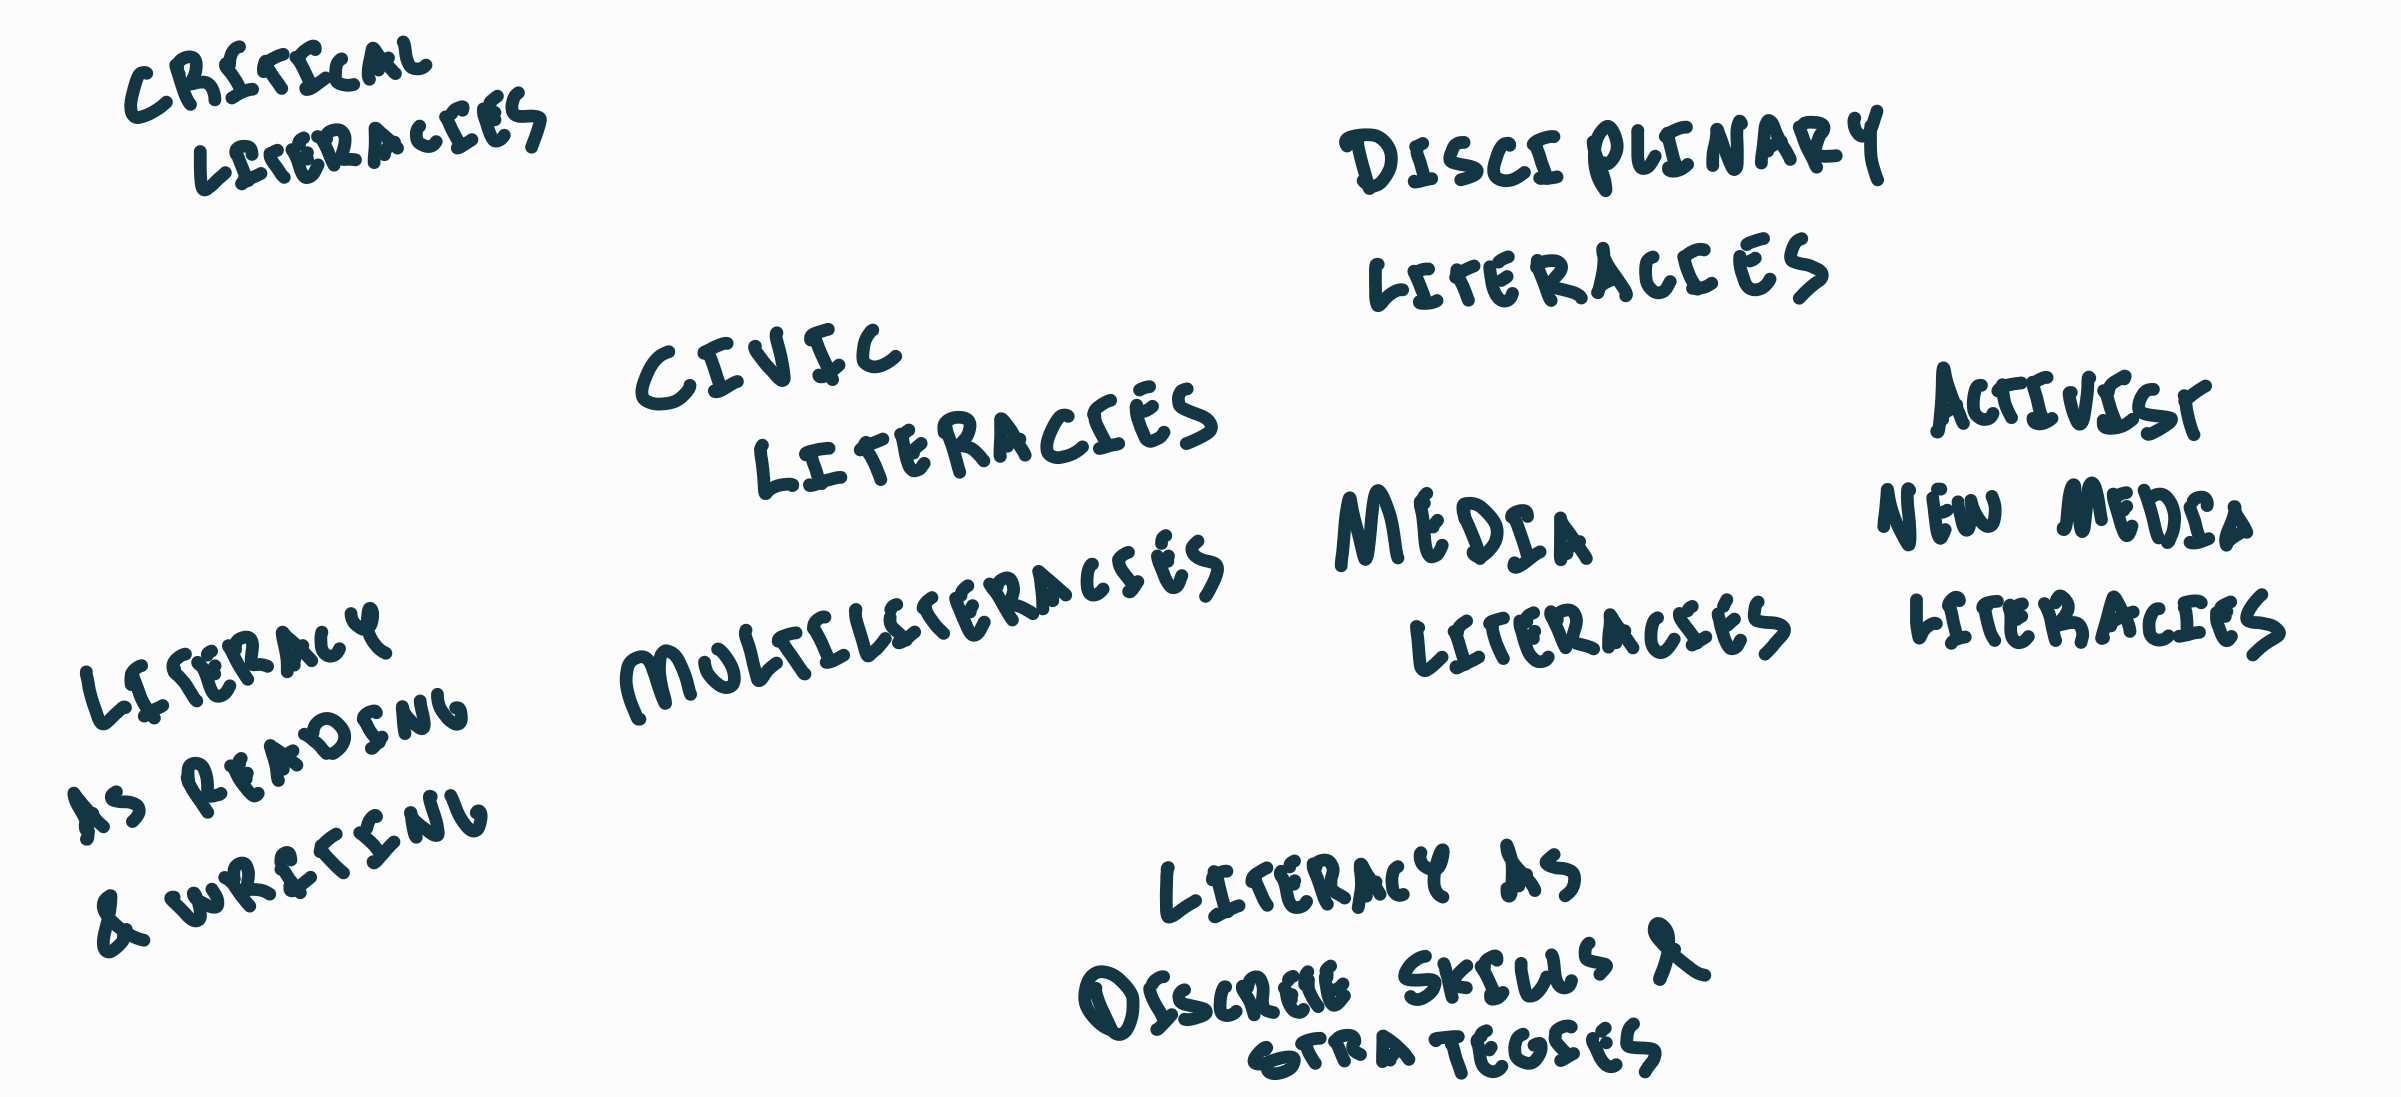 CRITICAL
LITERACIES
DISCIPLINARY
LITERACIES
CIVIC
LITERACIES
ACTIVIST
NEW MEDIA
LITERACIES
MEDIA
LITERACIES
MULTILITERACIES
LITERACY
AS READING
& WRITING
LITERACY AS
DISCRETE SKILLS &
STRATEGIES